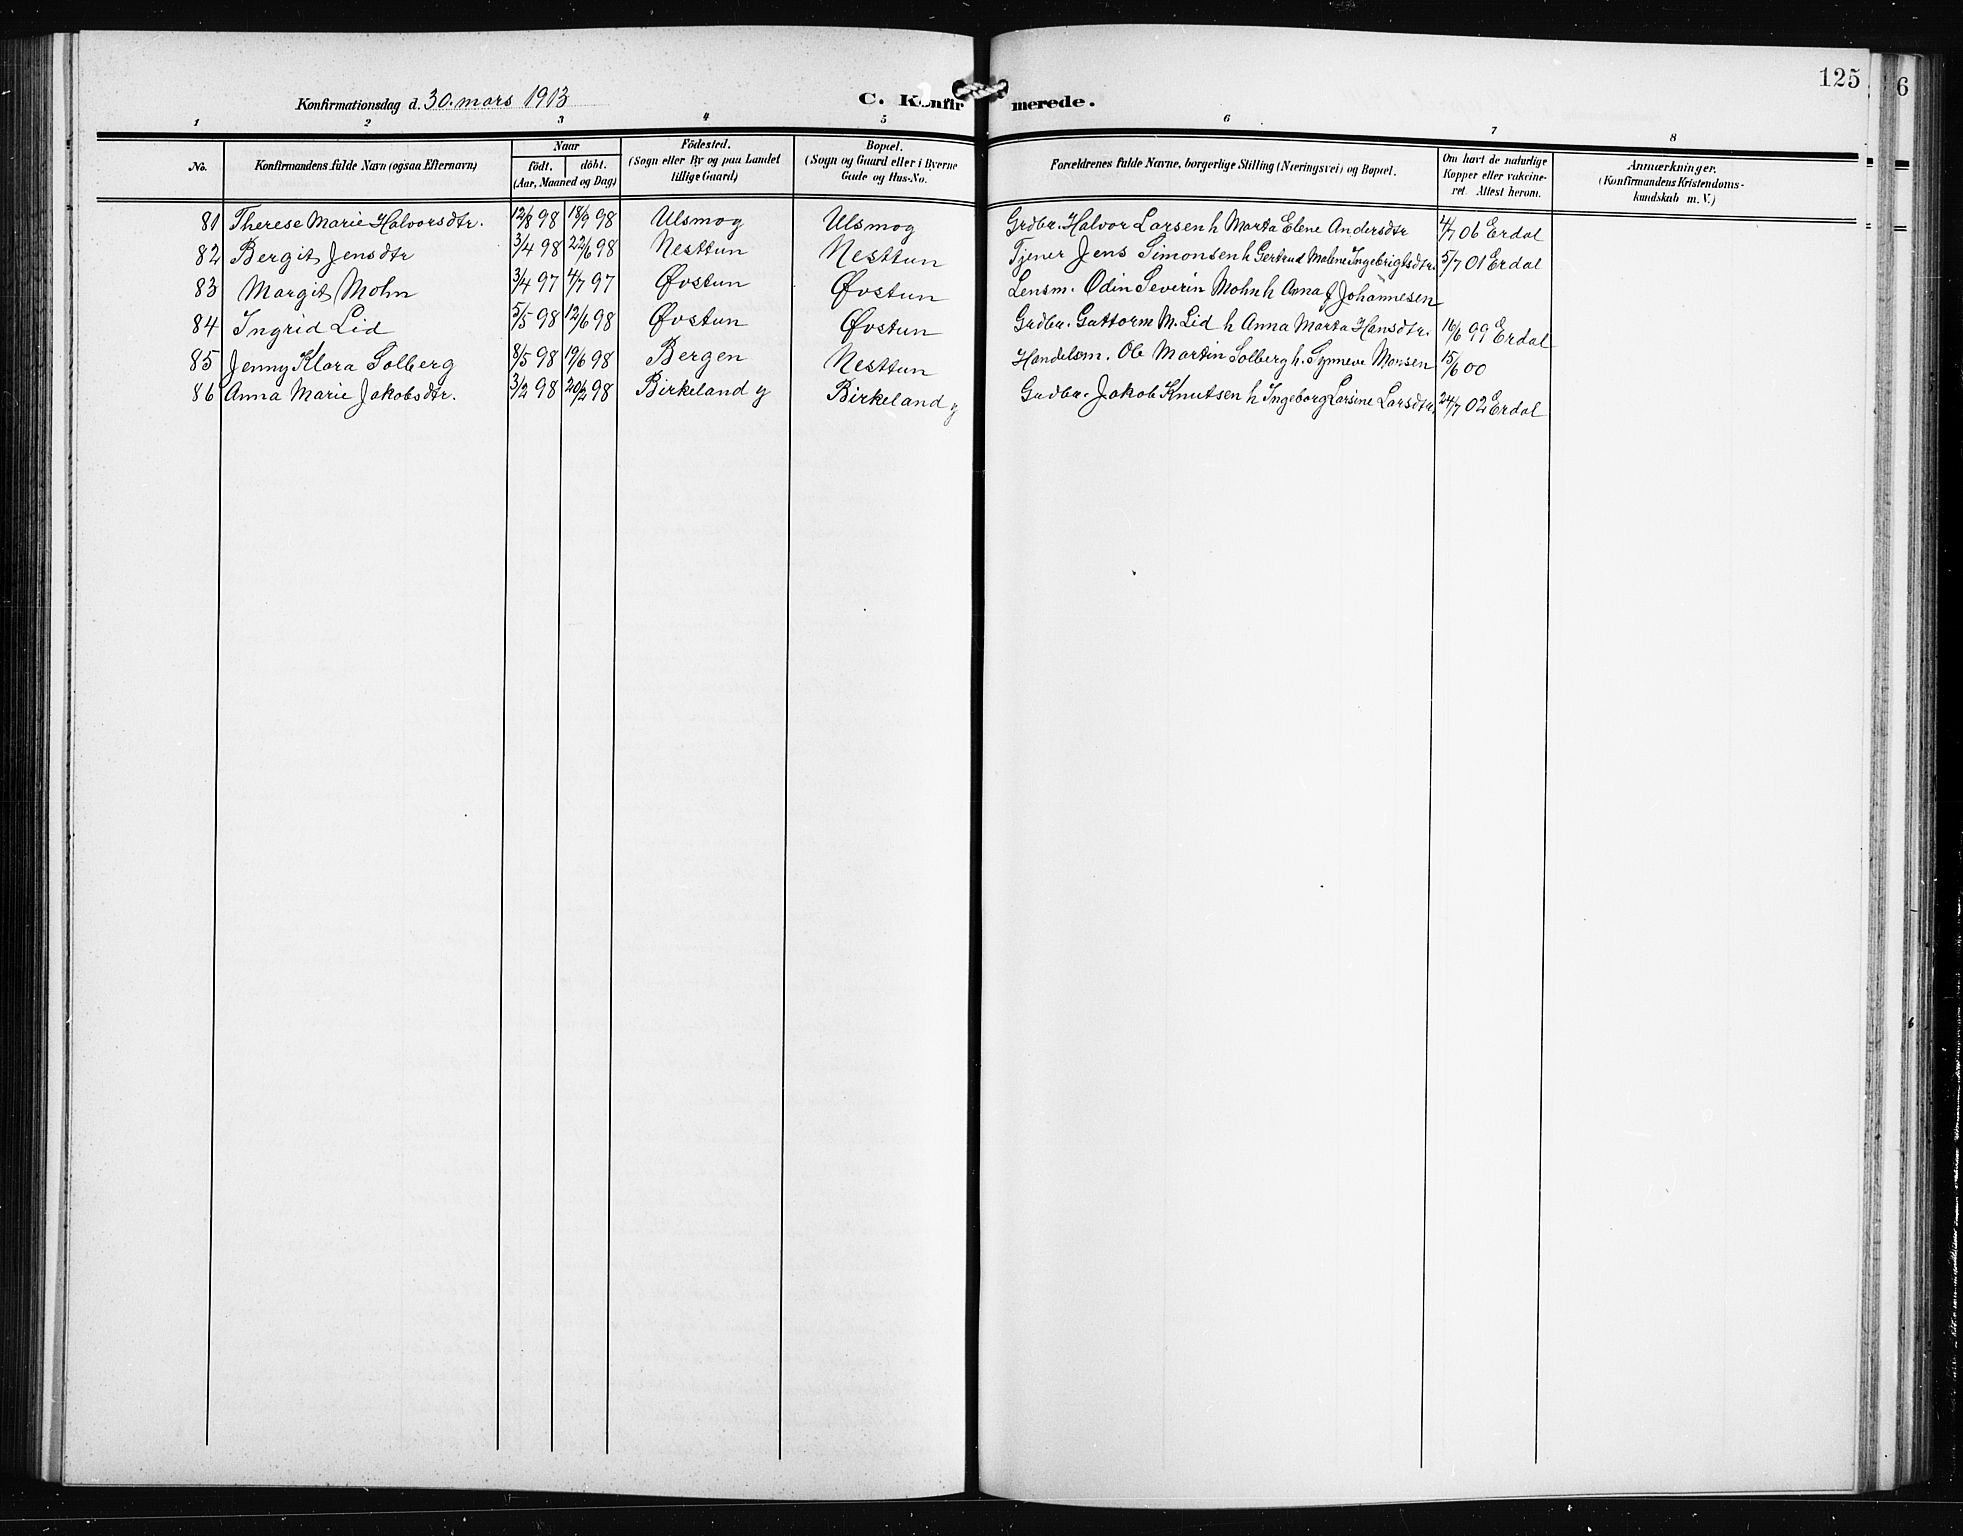 125
6
Konfirmationsdag d. 30. mars 1913 C. Konfirmerede.
1 2 3 4 5 6 7 8
No. Konfirmandens fulde Navn (ogsaa Efternavn) Naar födt. döbt. (Aar, Maaned og Dag) Födested. (Sogn eller By og paa Landet tillige Gaard) Bopæl. (Sogn og Gaard eller i Byerne Gade og Hus-No. Forældrenes fulde Navne, borgerlige Stilling (Næringsvei) og Bopæl. Om havt de naturlige Kopper eller vakcineret. Attest herom. Anmærkninger. (Konfirmandens Kristendomskundskab m. V.)
81 Therese Marie Halvorsdtr. 12/8 98 18/9 98 Ulsmog Ulsmog Grdbr. Halvor Larsen h Marta Elene Andersdtr 4/7 06 Erdal
82 Bergit Jensdtr 3/4 98 22/6 98 Nesttun Nesttun Tjener Jens Simonsen h Gertrud Malene Ingebrigtsdtr. 5/7 01 Erdal
83 Margit Mohn 3/4 97 4/7 97 Øvstun Øvstun Lensm. Odin Severin Mohn h Anna J Johannesen
84 Ingrid Lid 5/5 98 12/6 98 Øvstun Øvstun Grdbr. Guttorm M. Lid h Anna Marta Hansdtr. 16/6 99 Erdal
85 Jenny Klara Solberg 8/5 98 19/6 98 Bergen Nesttun Handelsm. Ole Martin Solberg h. Synneve Monsen 15/6 00
86 Anna Marie Jakobsdtr. 3/2 98 20/2 98 Birkeland y Birkeland y Grdbr. Jakob Knutsen h Ingeborg Larsine Larsdtr. 24/7 02 Erdal